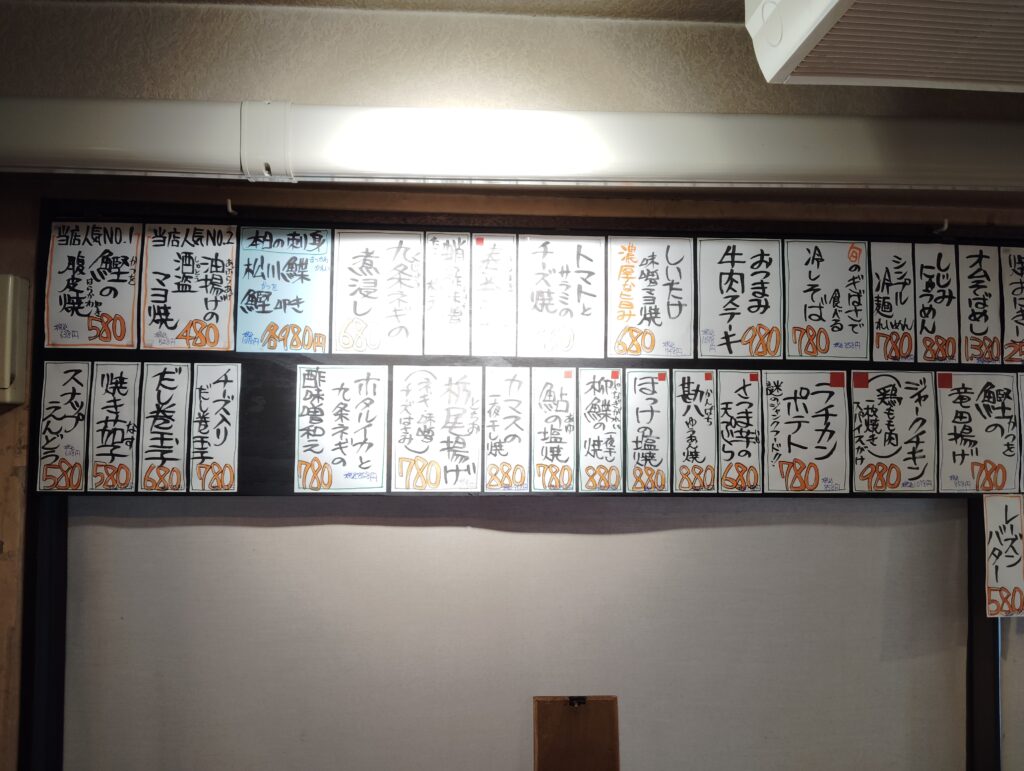 当店人気NO.1
鰹の
腹皮焼
580
当店人気NO.2
油揚げの
酒盗
マヨ焼
480
本日の刺身
松川鰈
鰹叩き
各980円
九条ネギの
煮浸し
680
トマトと
サラミの
チーズ焼
しいたけ
味噌マヨ焼
濃厚な旨み
680
おつまみ
牛肉ステーキ
980
旬のギばさで
食べる
冷しそば
780
シンプル
冷麺
れいめん
780
しじみ
にゅうめん
880
オムそばめし
1380
スナップ
えんどう
580
焼き茄子
なす
580
だし巻玉子
680
チーズ入り
だし巻玉子
780
ホタルイカと
九条ネギの
酢味噌和え
780
栃尾揚げ
(ネギ味噌
チーズはさみ)
780
カマスの
一夜干し焼
880
鮎の塩焼
780
柳鰈の
一夜干し
焼
880
ほっけの塩焼
880
勘八
かんぱち
880
さつま芋の
天ぷら
680
ラチカン
ポテト
謎のジャンクフード!!
780
ジャークチキン
(鶏もも肉
980
鰹の
かつを
竜田揚げ
780
レーズン
バター
580